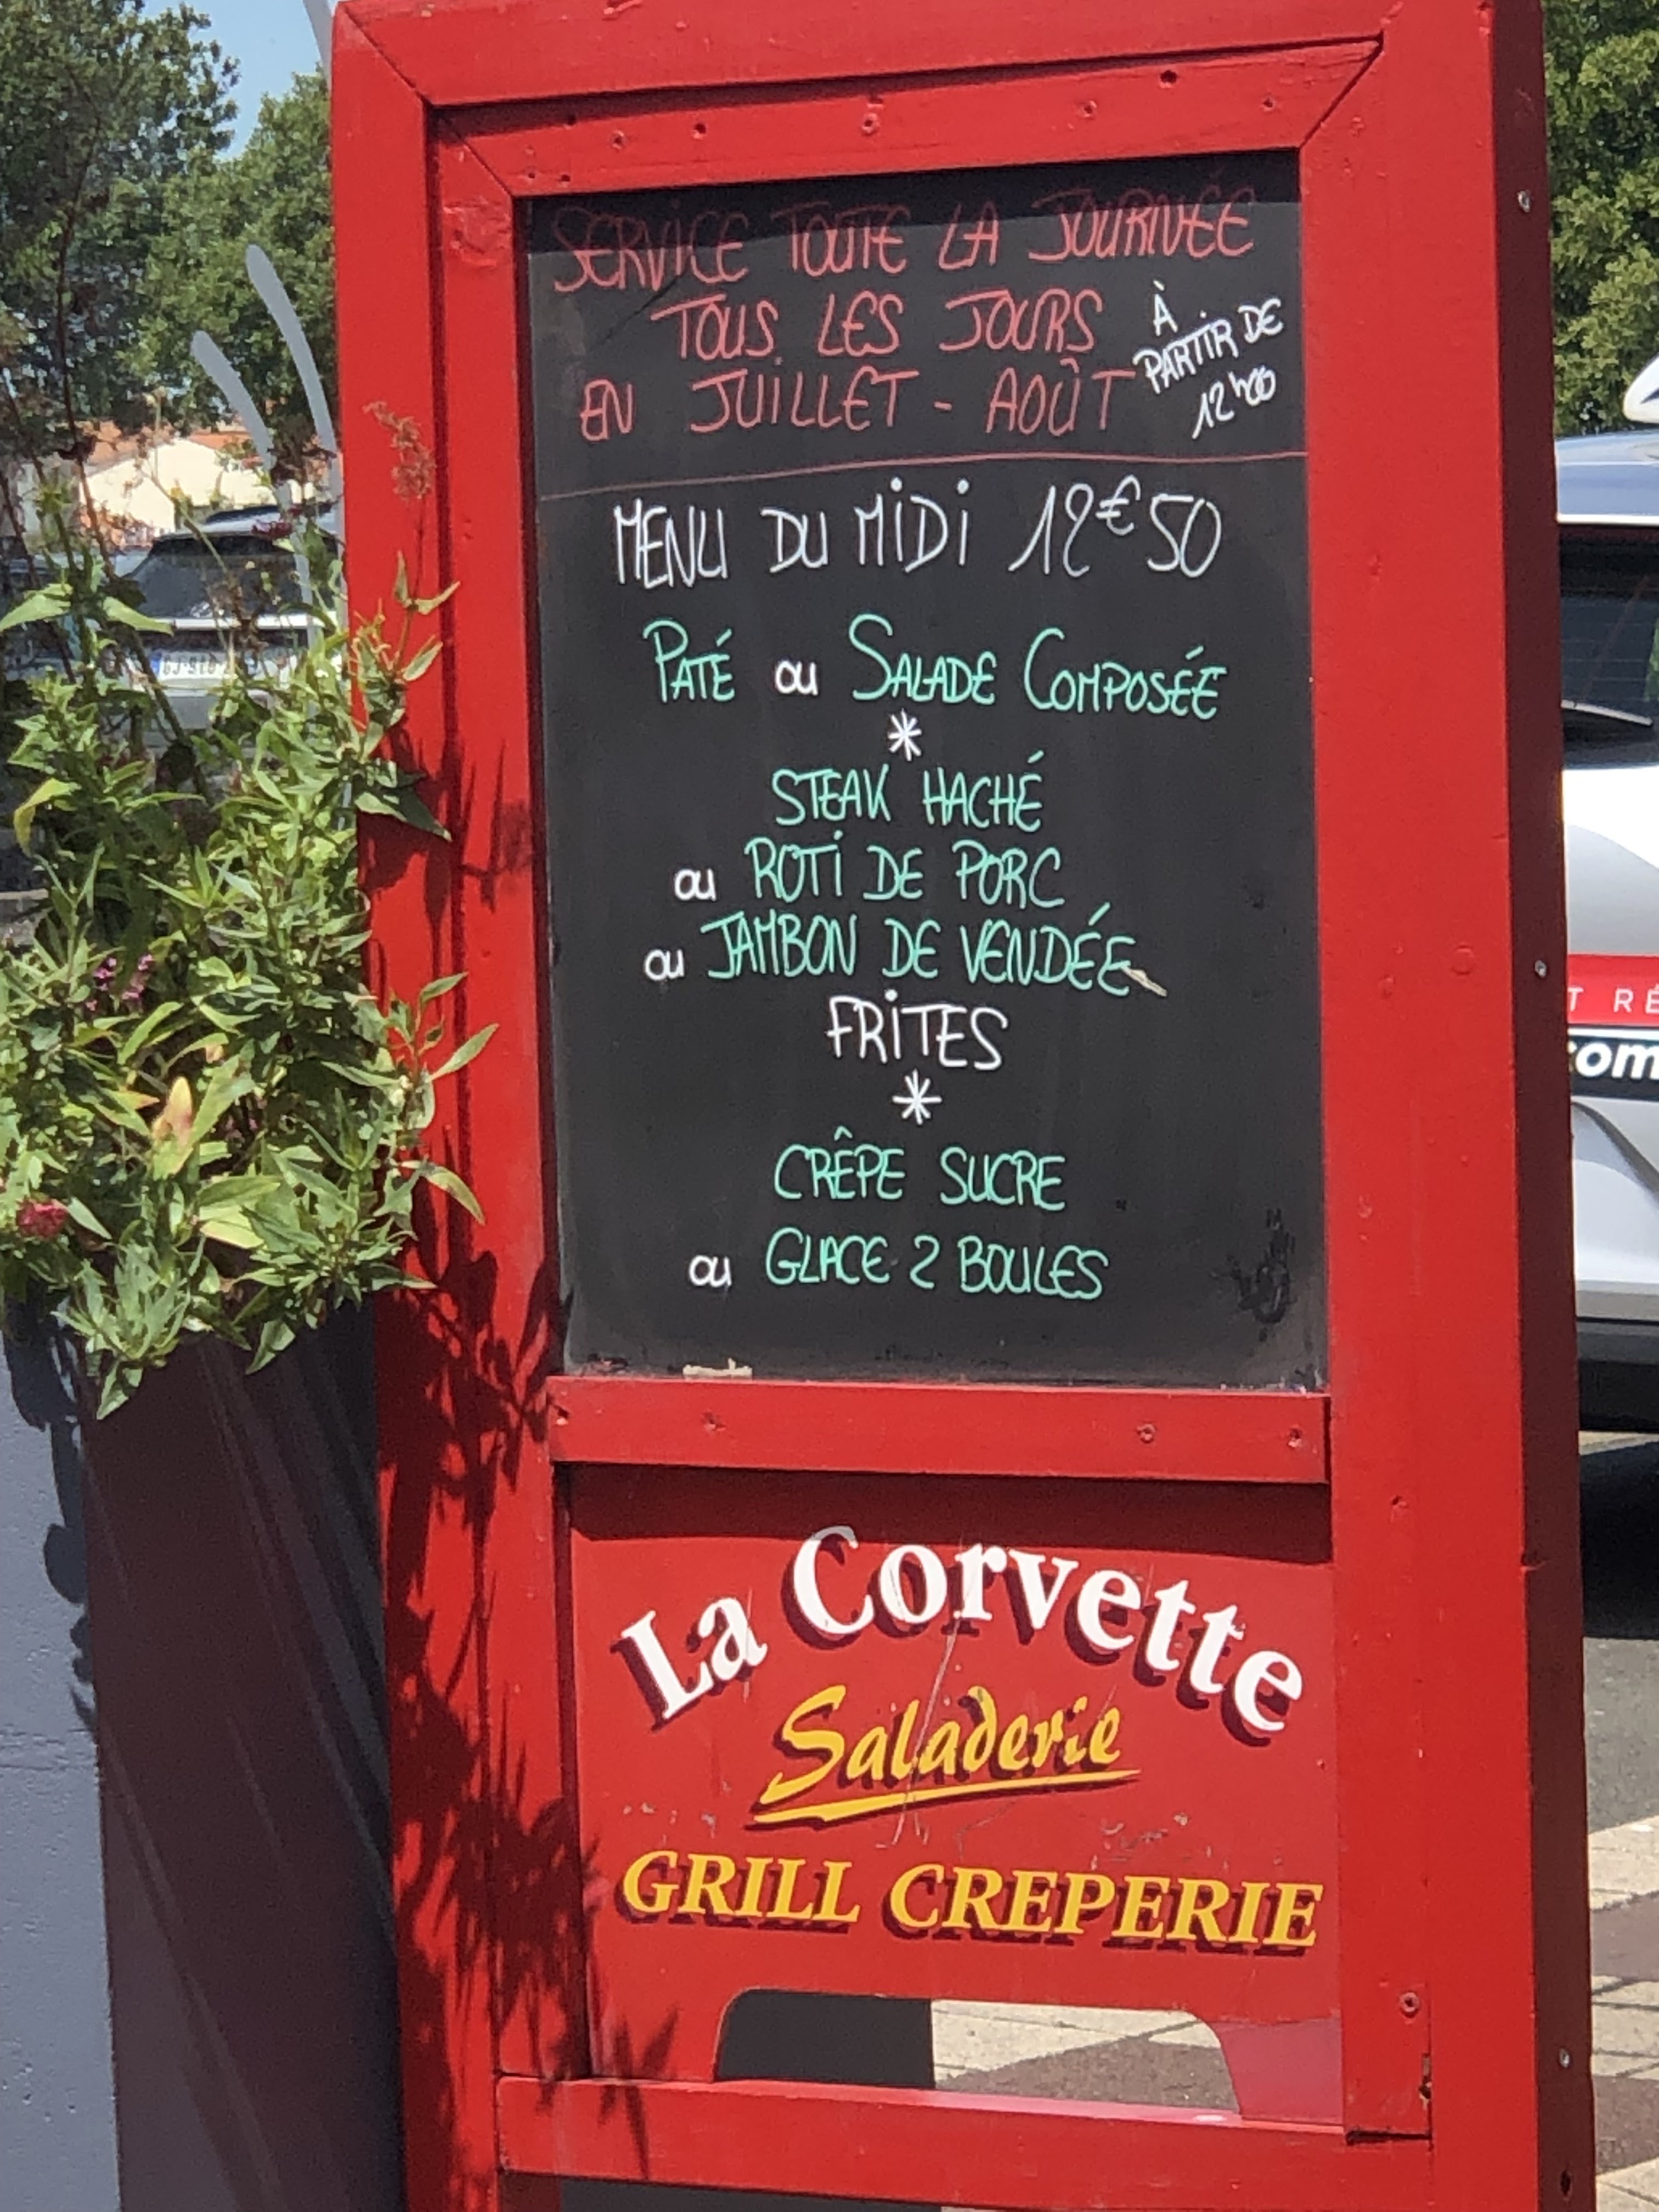 SERVICE TOUTE LA JOURNÉE
TOUS LES JOURS
EN JUILLET - AOÛT
À
PARTIR DE
12h00
MENU DU MIDI 12€50
PATÉ ou SALADE COMPOSÉE
*
STEAK HACHÉ
ou ROTI DE PORC
ou JAMBON DE VENDÉE
FRITES
*
CRÊPE SUCRE
ou GLACE 2 BOULES
La Corvette
Saladerie
GRILL CREPERIE
T RÉ
com